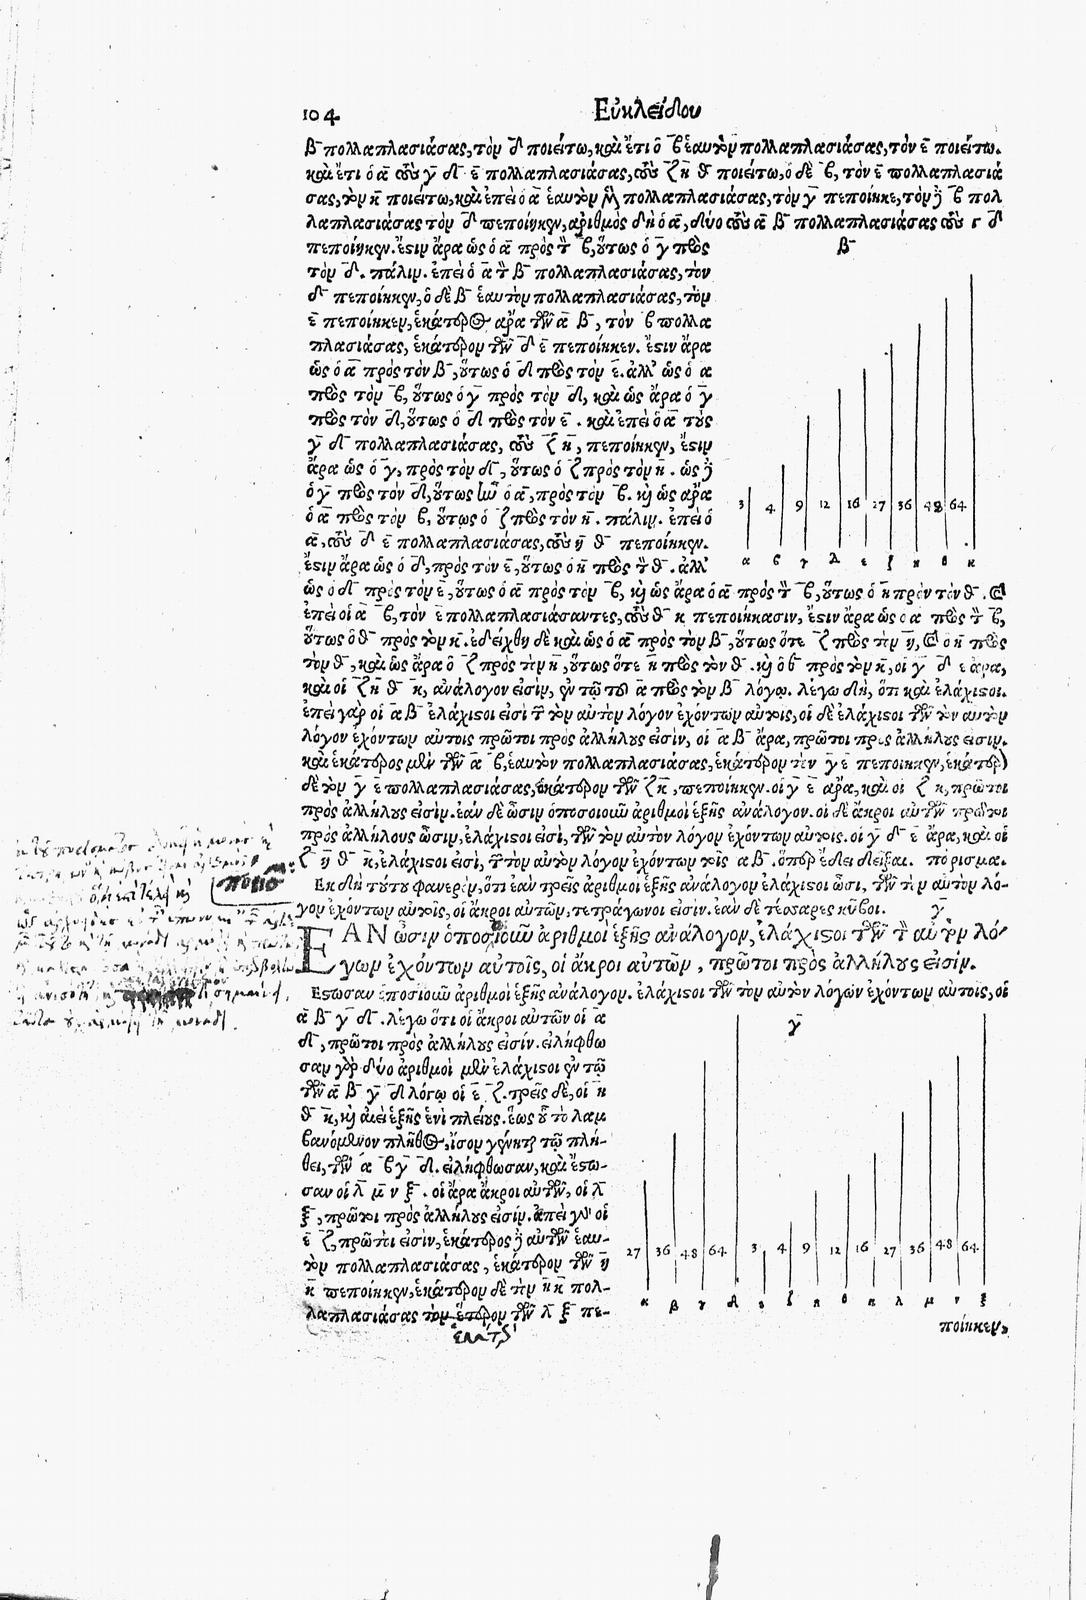 104 Εὐκλείδου
β̅ πολλαπλασιάσας, τὸν δ̅ ποιείτω, καὶ ἔτι ὁ β̅ ἑαυτὸν πολλαπλασιάσας, τὸν ε̅ ποιείτω.
καὶ ἔτι ὁ α̅ τοὺς γ̅ δ̅ ε̅ πολλαπλασιάσας, τοὺς ζ̅ η̅ θ̅ ποιείτω, ὁ δὲ β̅, τὸν ε̅ πολλαπλασιά
σας, τὸν κ̅ ποιείτω, καὶ ἐπεὶ ὁ α̅ ἑαυτὸν μὲν πολλαπλασιάσας, τὸν γ̅ πεποίηκε, τὸν δὲ β̅ πολ
λαπλασιάσας τὸν δ̅ πεποίηκεν, ἀριθμὸς δὴ ὁ α̅, δύο τοὺς α̅ β̅ πολλαπλασιάσας τοὺς γ δ̅
πεποίηκεν. ἔστιν ἄρα ὡς ὁ α̅ πρὸς τὸν β̅, οὕτως ὁ γ̅ πρὸς
β̅
τὸν δ̅. πάλιν. ἐπεὶ ὁ α̅ τὸν β̅ πολλαπλασιάσας, τὸν
δ̅ πεποίηκεν, ὁ δὲ β̅ ἑαυτὸν πολλαπλασιάσας, τὸν
ε̅ πεποίηκεν, ἑκάτερος ἄρα τῶν α̅ β̅, τὸν β πολλα
πλασιάσας, ἑκάτερον τῶν δ̅ ε̅ πεποίηκεν. ἔστιν ἄρα
ὡς ὁ α̅ πρὸς τὸν β̅, οὕτως ὁ δ̅ πρὸς τὸν ε̅. ἀλλ' ὡς ὁ α
πρὸς τὸν β̅, οὕτως ὁ γ̅ πρὸς τὸν δ̅, καὶ ὡς ἄρα ὁ γ̅
πρὸς τὸν δ̅, οὕτως ὁ δ̅ πρὸς τὸν ε̅. καὶ ἐπεὶ ὁ α̅ τοὺς
γ̅ δ̅ πολλαπλασιάσας, τοὺς ζ̅ η̅, πεποίηκεν, ἔστιν
ἄρα ὡς ὁ γ̅, πρὸς τὸν δ̅, οὕτως ὁ ζ̅ πρὸς τὸν η̅. ὡς δὲ
ὁ γ̅ πρὸς τὸν δ̅, οὕτως ἦν ὁ α̅, πρὸς τὸν β̅. καὶ ὡς ἄρα
ὁ α̅ πρὸς τὸν β̅, οὕτως ὁ ζ̅ πρὸς τὸν η̅. πάλιν. ἐπεὶ ὁ
α̅, τοὺς δ̅ ε̅ πολλαπλασιάσας, τοὺς η̅ θ̅ πεποίηκεν.
ἔστιν ἄρα ὡς ὁ δ̅, πρὸς τὸν ε̅, οὕτως ὁ η̅ πρὸς τὸν θ̅. ἀλλ'
3 4 9 12 16 27 36 48 64
α β γ δ ε ζ η θ κ
ὡς ὁ δ̅ πρὸς τὸν ε̅, οὕτως ὁ α̅ πρὸς τὸν β̅, καὶ ὡς ἄρα ὁ α̅ πρὸς τὸν β̅, οὕτως ὁ η̅ πρὸν τὸν θ̅. καὶ
ἐπεὶ οἱ α̅ β̅, τὸν ε̅ πολλαπλασιάσαντες, τοὺς θ̅ κ πεποιήκασιν, ἔστιν ἄρα ὡς ὁ α πρὸς τὸν β̅,
οὕτως ὁ θ̅ πρὸς τὸν κ̅. ἐδείχθη δὲ καὶ ὡς ὁ α̅ πρὸς τὸν β̅, οὕτως ὅτε ζ̅ πρὸς τὴν η̅, καὶ ὁ η̅ πρὸς
τὸν θ̅, καὶ ὡς ἄρα ὁ ζ̅ πρὸς τὴν η̅, οὕτως ὅτε η̅ πρὸς τὸν θ̅. καὶ ὁ θ̅ πρὸς τὸν κ̅, οἱ γ̅ δ̅ ε ἄρα,
καὶ οἱ ζ̅ η̅ θ̅ κ̅, ἀνάλογον εἰσὶν, ἐν τῷ τοῦ α̅ πρὸς τὸν β̅ λόγῳ. λέγω δὴ, ὅτι καὶ ἐλάχιστοι.
ἐπεὶ γὰρ οἱ α̅ β̅ ἐλάχιστοι εἰσὶ τῶν τὸν αὐτὸν λόγον ἐχόντων αὐτοῖς, οἱ δὲ ἐλάχιστοι τῶν τὸν αὐτὸν
λόγον ἐχόντων αὐτοῖς πρῶτοι πρὸς ἀλλήλους εἰσὶν, οἱ α̅ β̅ ἄρα, πρῶτοι πρὸς ἀλλήλους εἰσιν.
καὶ ἑκάτερος μὲν τῶν α̅ β̅, ἑαυτὸν πολλαπλασιάσας, ἑκάτερον τῶν γ̅ ε̅ πεποίηκεν, ἑκάτερον
δὲ τὸν γ̅ ε̅ πολλαπλασιάσας, ἑκάτερον τῶν ζ̅ κ̅, πεποίηκεν. οἱ γ̅ ε̅ ἄρα, καὶ οἱ ζ̅ κ̅, πρῶτοι
πρὸς ἀλλήλους εἰσὶν. ἐὰν δὲ ὦσιν ὁποσοιοῦν ἀριθμοὶ ἑξῆς ἀνάλογον. οἱ δὲ ἄκροι αὐτῶν πρῶτοι
πρὸς ἀλλήλους ὦσιν, ἐλάχιστοι εἰσὶ, τῶν τὸν αὐτὸν λόγον ἐχόντων αὐτοῖς. οἱ γ̅ δ̅ ε̅ ἄρα, καὶ οἱ
ζ̅ η̅ θ̅ κ̅, ἐλάχιστοι εἰσὶ, τῶν τὸν αὐτὸν λόγον ἐχόντων τοῖς α β̅. ὅπερ ἔδει δεῖξαι. πόρισμα.
Ἐκ δὴ τούτου φανερὸν, ὅτι ἐὰν τρεῖς ἀριθμοὶ ἑξῆς ἀνάλογον ἐλάχιστοι ὦσι, τῶν τὸν αὐτὸν λό-
γον ἐχόντων αὐτοῖς, οἱ ἄκροι αὐτῶν, τετράγωνοι εἰσιν. ἐὰν δὲ τέσσαρες κῦβοι. γ̅
ΕΑΝ ὦσιν ὁποσοιοῦν ἀριθμοὶ ἑξῆς ἀνάλογον, ἐλάχιστοι τῶν τὸν αὐτὸν λό
γων ἐχόντων αὐτοῖς, οἱ ἄκροι αὐτῶν, πρῶτοι πρὸς ἀλλήλους εἰσίν.
Ἔστωσαν ὁποσιοιοῦν ἀριθμοὶ ἑξῆς ἀνάλογον. ἐλάχιστοι τῶν τὸν αὐτὸν λόγων ἐχόντων αὐτοῖς, οἱ
α̅ β̅ γ̅ δ̅. λέγω ὅτι οἱ ἄκροι αὐτῶν οἱ α̅
γ̅
δ̅, πρῶτοι πρὸς ἀλλήλους εἰσίν. εἰλήφθω
σαν γὰρ δύο ἀριθμοὶ μὲν ἐλάχιστοι ἐν τῷ
τῶν α̅ β̅ γ̅ δ̅ λόγῳ οἱ ε̅ ζ̅. τρεῖς δὲ, οἱ η̅
θ̅ κ̅, καὶ αἰεὶ ἑξῆς ἑνὶ πλείους. ἕως οὗ τὸ λαμ
βανόμενον πλῆθος, ἴσον γένηται τῷ πλή-
θει, τῶν α̅ β̅ γ̅ δ̅. εἰλήφθωσαν, καὶ ἔστω-
σαν οἱ λ̅ μ̅ ν ξ̅. οἱ ἄρα ἄκροι αὐτῶν, οἱ λ̅
ξ̅, πρῶτοι πρὸς ἀλλήλους εἰσὶν. ἐπεὶ γὰρ οἱ
ε̅ ζ̅, πρῶτοι εἰσὶν, ἑκάτερος δὲ αὐτῶν ἑαυ-
τὸν πολλαπλασιάσας, ἑκάτερον τῶν η̅
κ̅ πεποίηκεν, ἑκάτερον δὲ τὴν η̅ κ̅ πολ-
λαπλασιάσας τὸν ἕτερον τῶν λ̅ ξ̅ πε-
27 36 48 64 3 4 9 12 16 27 36 48 64
α β γ δ ε ζ η θ κ λ μ ν ξ
ποίηκεν.